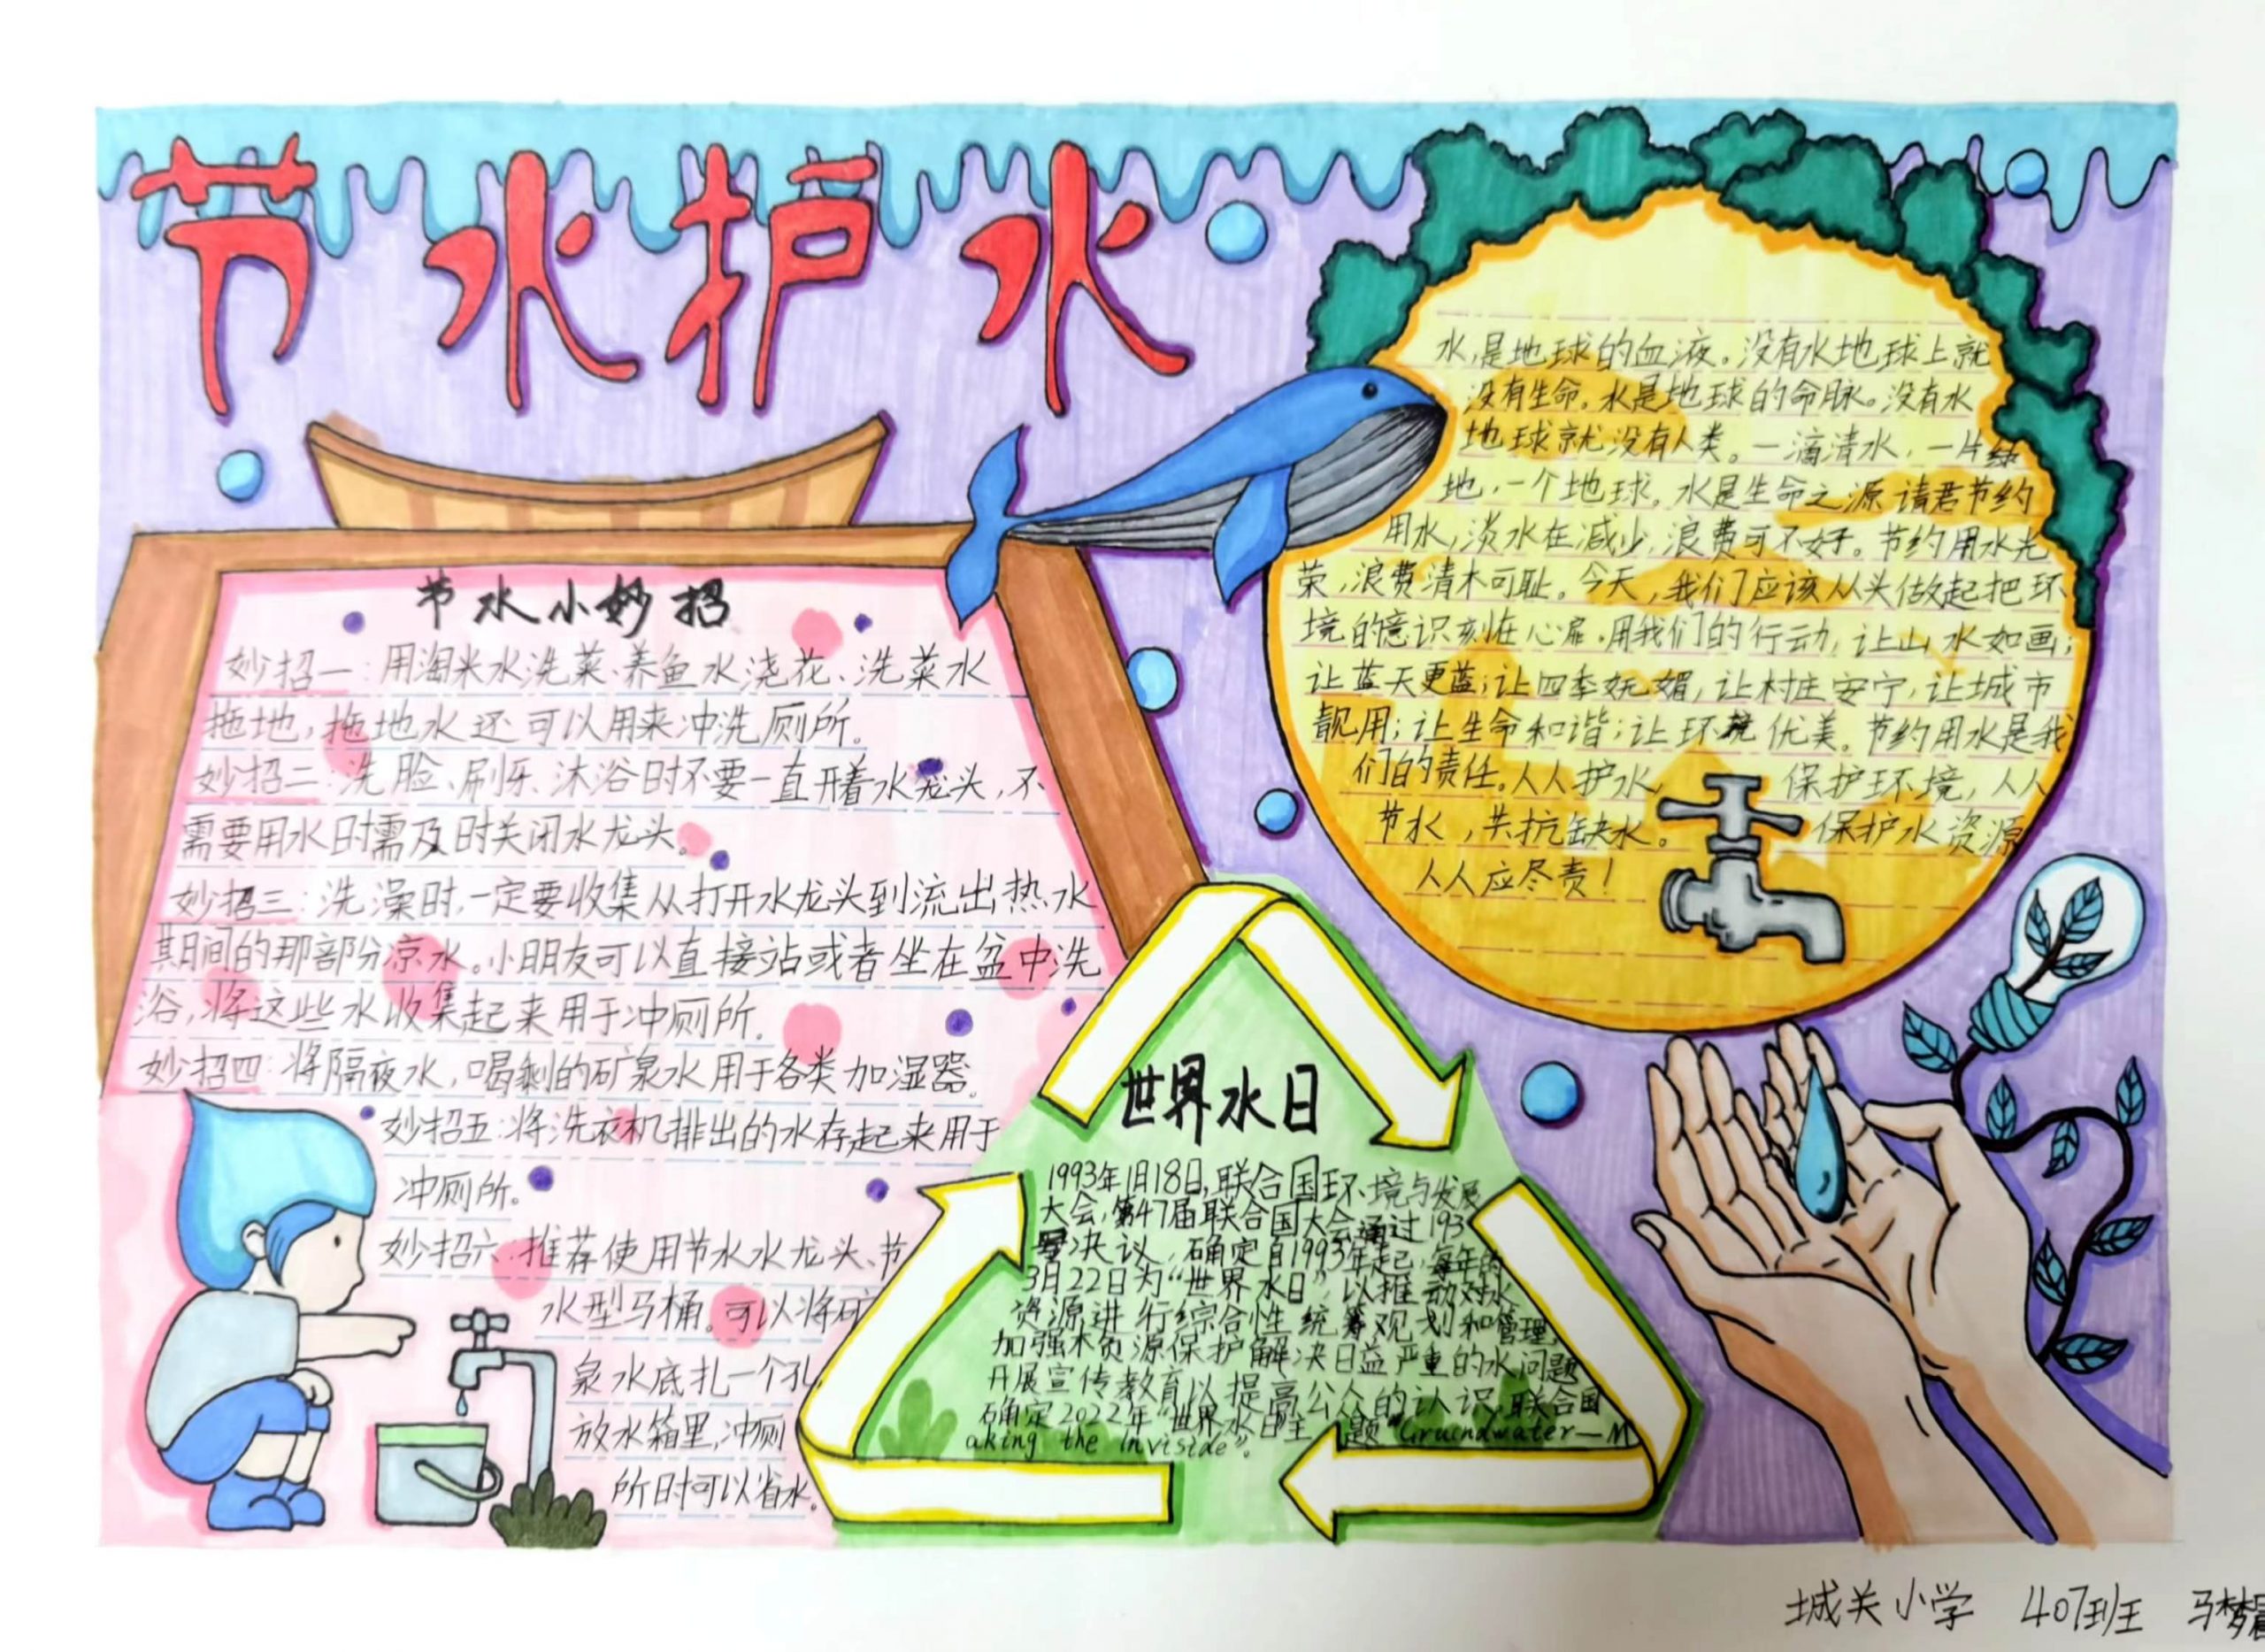 节水护水
节水小妙招
妙招一：用淘米水洗菜、养鱼水浇花、洗菜水
拖地，拖地水还可以用来冲洗厕所。
妙招二：洗脸、刷牙、沐浴时不要一直开着水龙头，不
需要用水时需及时关闭水龙头。
妙招三：洗澡时，一定要收集从打开水龙头到流出热水
其日间的那部分凉水。小朋友可以直接站或者坐在盆中洗
浴，将这些水收集起来用于冲厕所。
妙招四：将隔夜水，喝剩的矿泉水用于各类加湿器。
妙招五：将洗衣机排出的水存起来用于
冲厕所。
妙招六：推荐使用节水水龙头、节
水型马桶。可以将矿
泉水底扎一个孔，
放水箱里，冲厕
所时可以省水。
水，是地球的血液。没有水地球上就
没有生命。水是地球的命脉。没有水
地球就没有人类。一滴清水，一片绿
地，一个地球。水是生命之源请君节约
用水，淡水在减少，浪费可不好。节约用水光
荣，浪费清木可耻。今天，我们应该从头做起把环
境的意识刻在心扉。用我们的行动，让山水如画；
让蓝天更蓝；让四季妩媚，让村庄安宁，让城市
靓用；让生命和谐；让环境优美。节约用水是我
们的责任。人人护水，保护环境，人人
节水，共抗缺水。保护水资源
人人应尽责！
世界水日
1993年1月18日，联合国环境与发展
大会，第47届联合国大会通过193
号决议，确定自1993年起，每年的
3月22日为“世界水日”，以推动对水
资源进行综合性统筹观划和管理，
加强木负源保护解决日益严重的水问题
开展宣传教育以提高公众的认识，联合国
确定2022年“世界水日”主题“Gruindwater—M
aking the inviside”。
城关小学 407班 马梦